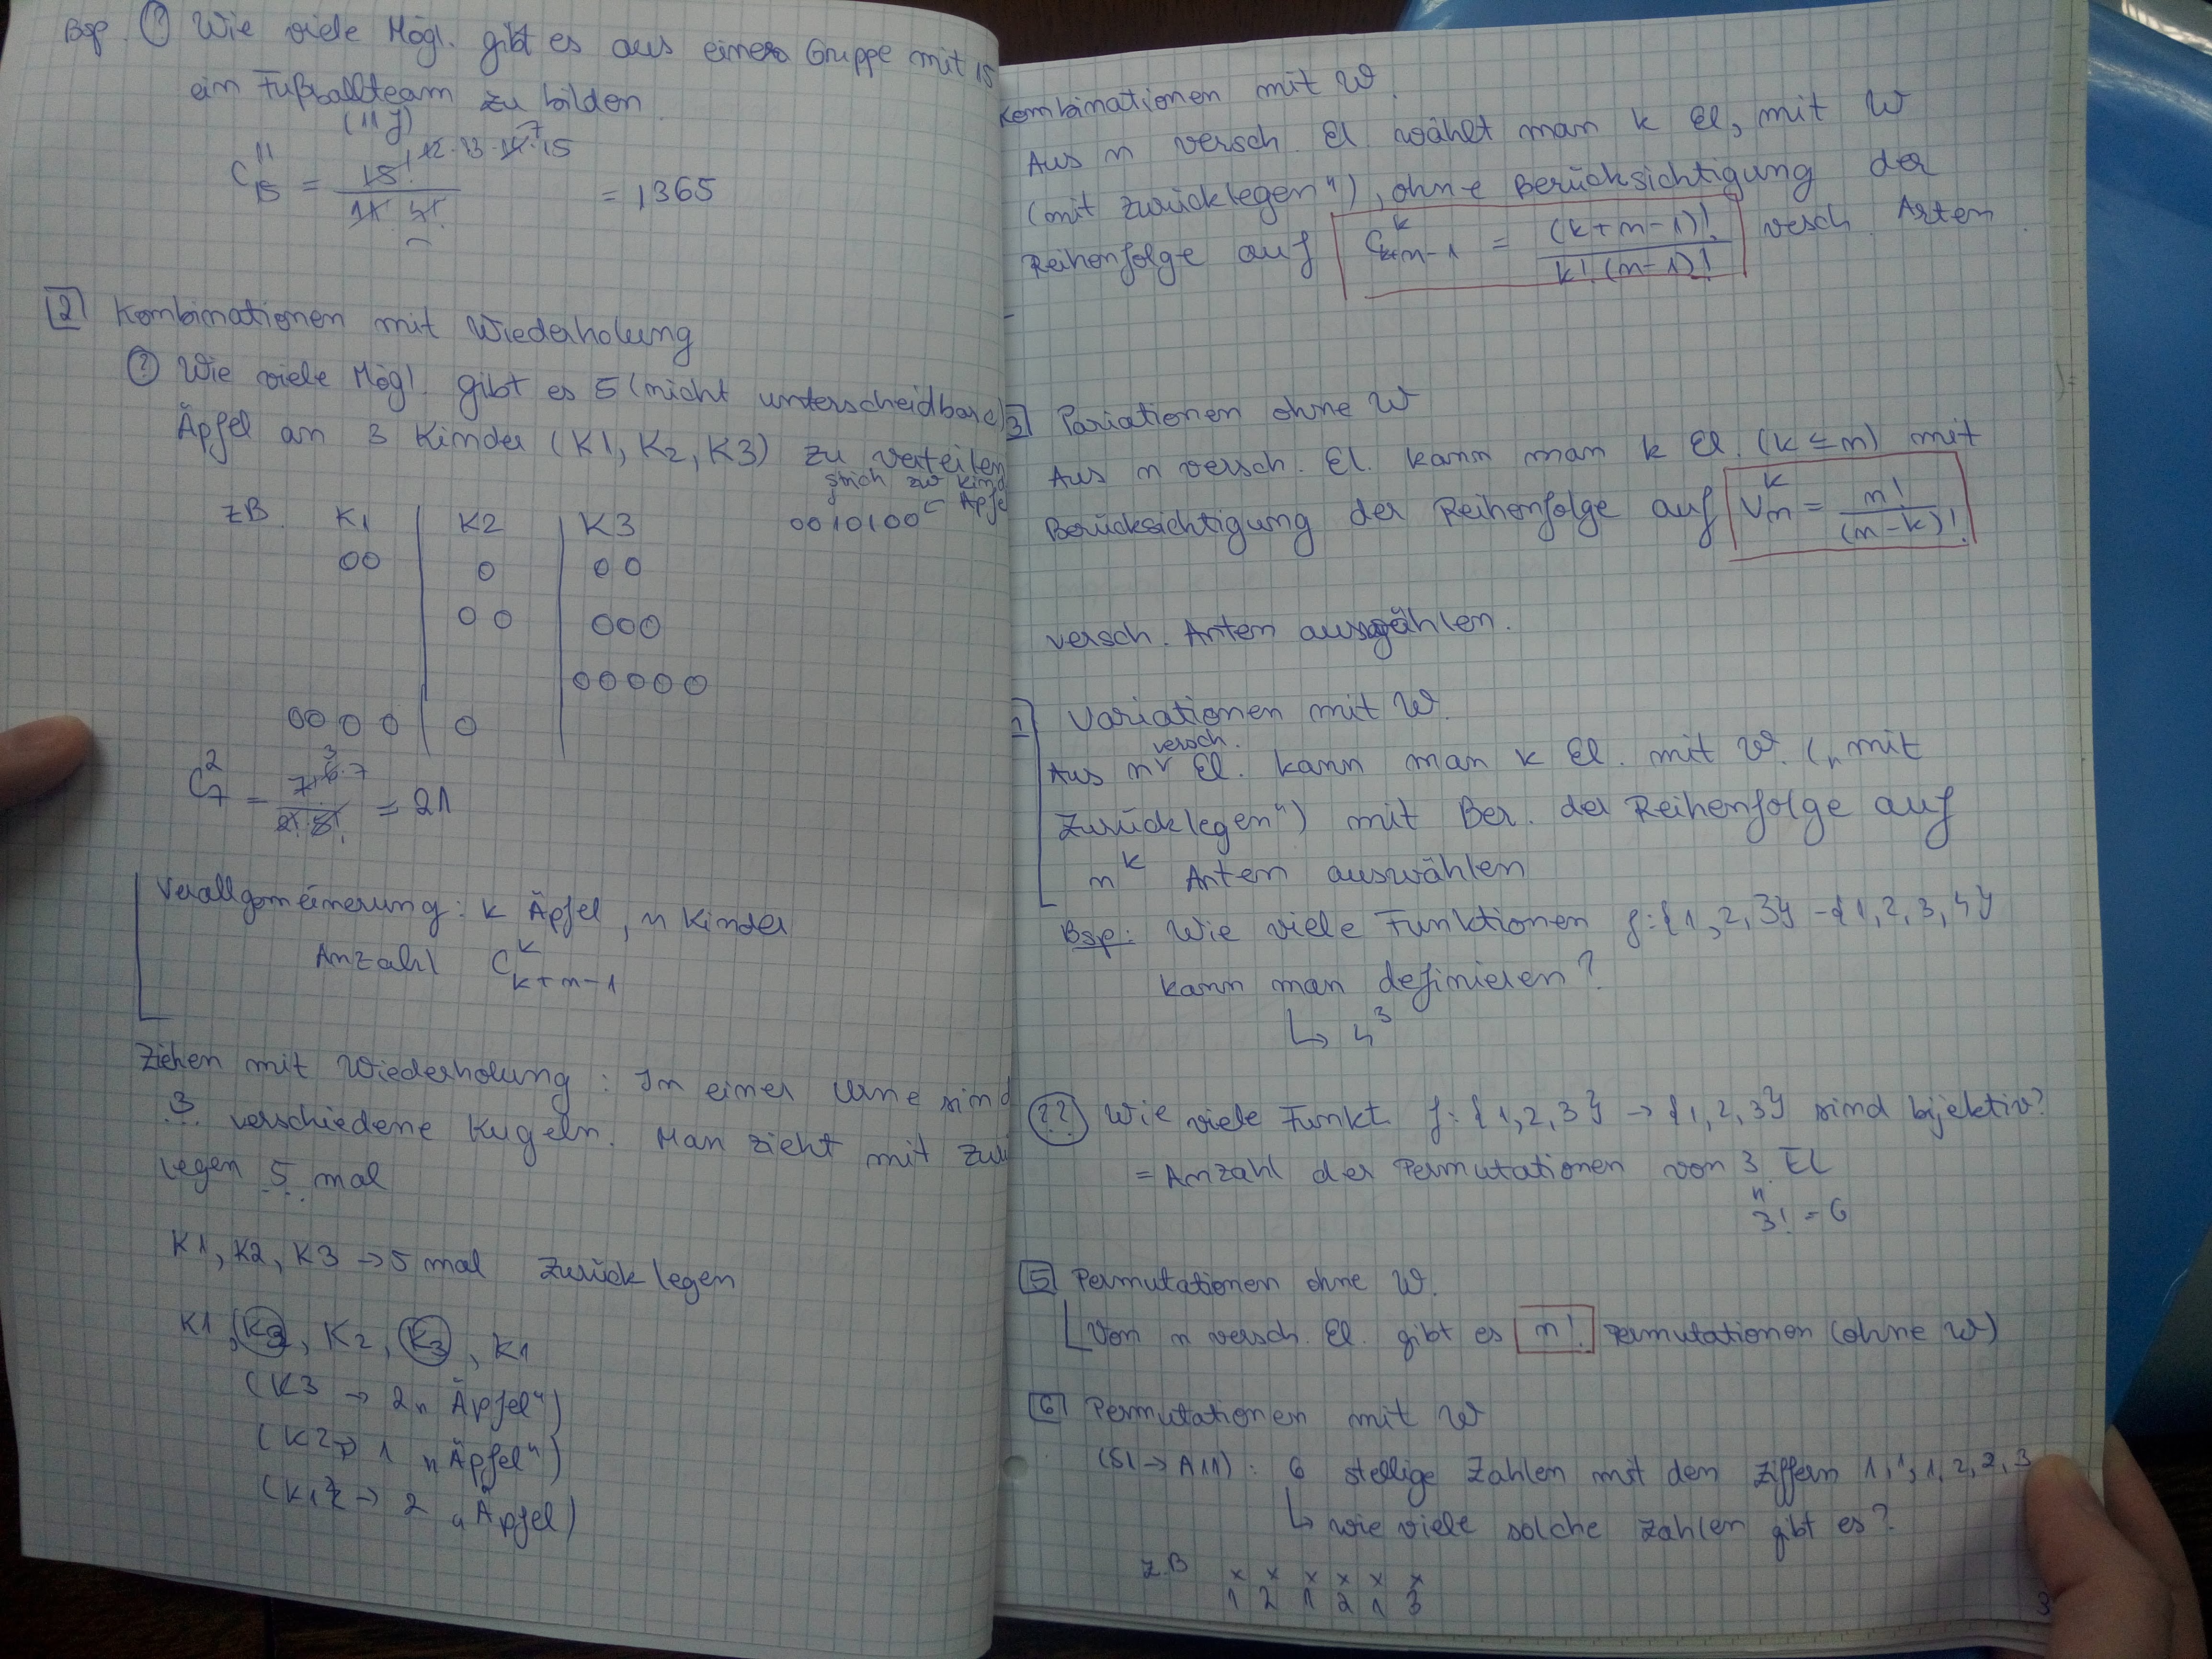 Bsp. ? Wie viele Mögl. gibt es aus einer Gruppe mit 15
ein Fußballteam zu bilden
(11 J)
C_15^11 = 15! 12·13·14·15 / 11! 4! = 1365
7
2 Kombinationen mit Wiederholung
? Wie viele Mögl. gibt es 5 (nicht unterscheidbare)
Äpfel an 3 Kinder (K1, K2, K3) zu verteilen
zB. K1 | K2 | K3
0010100 ← Äpfel
00 | 0 | 00
| 00 | 000
| | 00000
0000 | 0 |
C_7^2 = 7! 6·7 / 2! 5! = 21
3
Verallgemeinerung: k Äpfel, n Kinder
Anzahl C_{k+n-1}^k
Ziehen mit Wiederholung: In einer Urne sind
3 verschiedene Kugeln. Man zieht mit Zurü
legen 5 mal
K1, K2, K3 → 5 mal Zurücklegen
K1, K3, K2, K3, K1
(K3 → 2 „Äpfel“)
(K2 → 1 „Äpfel“)
(K1 → 2 „Äpfel)
Kombinationen mit W.
Aus n versch. El wählt man k El, mit W
(mit Zurücklegen“), ohne Berücksichtigung der
Reihenfolge auf C_{k+n-1}^k = (k+n-1)! / k! (n-1)! vesch. Arten.
3 Variationen ohne W
Aus n versch. El. kann man k El. (k ≤ n) mit
Berücksichtigung der Reihenfolge auf V_n^k = n! / (n-k)!
versch. Arten auswählen.
Variationen mit W.
Aus n versch. El. kann man k El. mit W. („mit
Zurücklegen“) mit Ber. der Reihenfolge auf
n^k Arten auswählen
Bsp: Wie viele Funktionen f: {1,2,3} → {1,2,3,4}
kann man definieren?
↳ 4^3
?? Wie viele Funkt. f: {1,2,3} → {1,2,3} sind bijektiv?
= Anzahl der Permutationen von 3 El
"
3! = 6
5 Permutationen ohne W.
Von n versch. El. gibt es n! Permutationen (ohne W)
6 Permutationen mit W
(S1 → A11): 6 stellige Zahlen mit den Ziffern 1,1,1,2,2,3
↳ wie viele solche Zahlen gibt es?
z.B x x x x x x
1 2 1 2 1 3
3